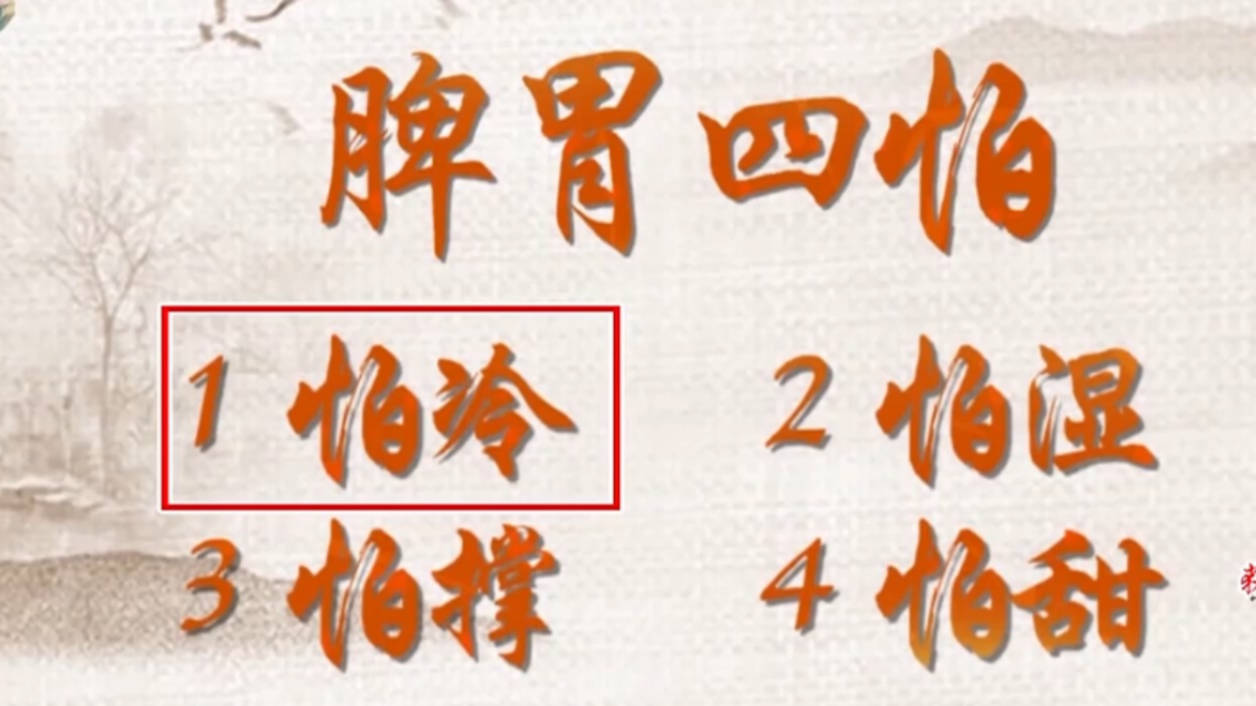 脾胃四怕
1 怕冷 2 怕湿
3 怕撑 4 怕甜